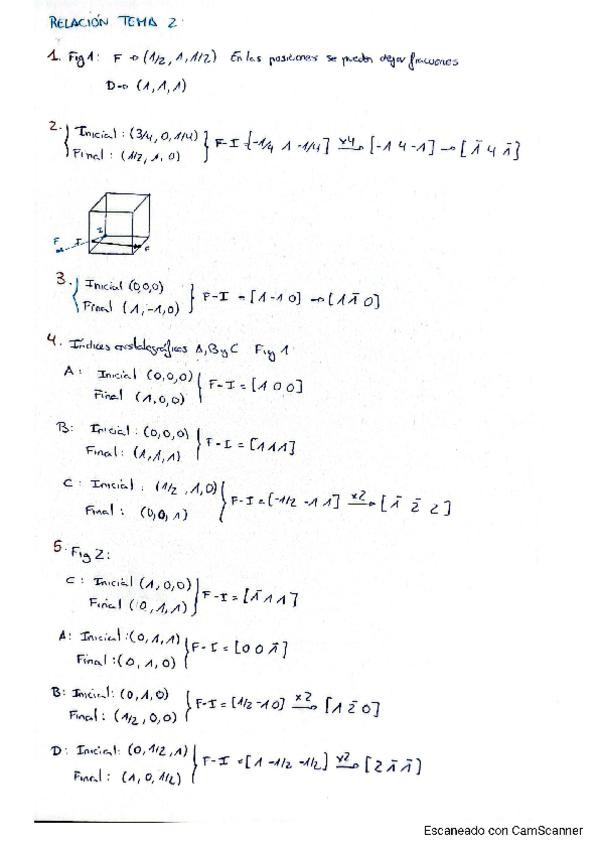 RELACIÓN TEMA 2:
1. Fig 1: F → (1/2, 1, 1/2) En las posiciones se pueden dejar fracciones
D → (1, 1, 1)
2. Inicial: (3/4, 0, 1/4) } F-I = [-1/4 1 -1/4] x4→ [-1 4 -1] → [1̄ 4 1̄]
Final: (1/2, 1, 0)
F I I F
3. Inicial (0,0,0) } F-I = [1 -1 0] → [1 1̄ 0]
Final (1, -1, 0)
4. Índices cristalográficos A, B y C Fig 1
A: Inicial (0,0,0) } F-I = [1 0 0]
Final (1,0,0)
B: Inicial: (0,0,0) } F-I = [1 1 1]
Final: (1,1,1)
C: Inicial: (1/2, 1, 0) } F-I = [-1/2 -1 1] x2→ [1̄ 2̄ 2]
Final: (0,0,1)
5. Fig 2:
C: Inicial (1,0,0) } F-I = [1̄ 1 1]
Final (0,1,1)
A: Inicial: (0,1,1) } F-I = [0 0 1̄]
Final: (0,1,0)
B: Inicial: (0,1,0) } F-I = [1/2 -1 0] x2→ [1 2̄ 0]
Final: (1/2, 0, 0)
D: Inicial: (0, 1/2, 1) } F-I = [1 -1/2 -1/2] x2→ [2 1̄ 1̄]
Final: (1, 0, 1/2)
Escaneado con CamScanner